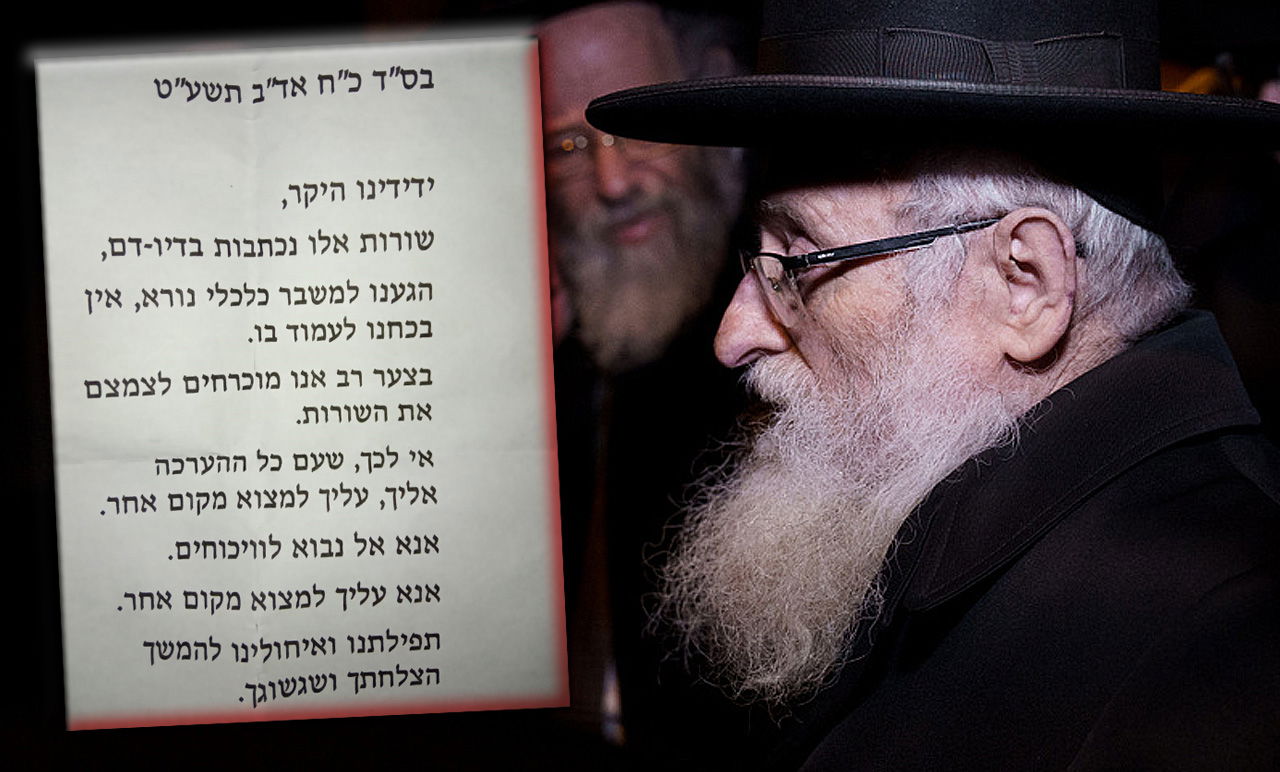 בס"ד כ"ח אד"ב תשע"ט
ידידינו היקר,
שורות אלו נכתבות בדיו-דם,
הגענו למשבר כלכלי נורא, אין
בכחנו לעמוד בו.
בצער רב אנו מוכרחים לצמצם
את השורות.
אי לכך, שעם כל ההערכה
אליך, עליך למצוא מקום אחר.
אנא אל נבוא לוויכוחים.
אנא עליך למצוא מקום אחר.
תפילתנו ואיחולינו להמשך
הצלחתך ושגשוגך.